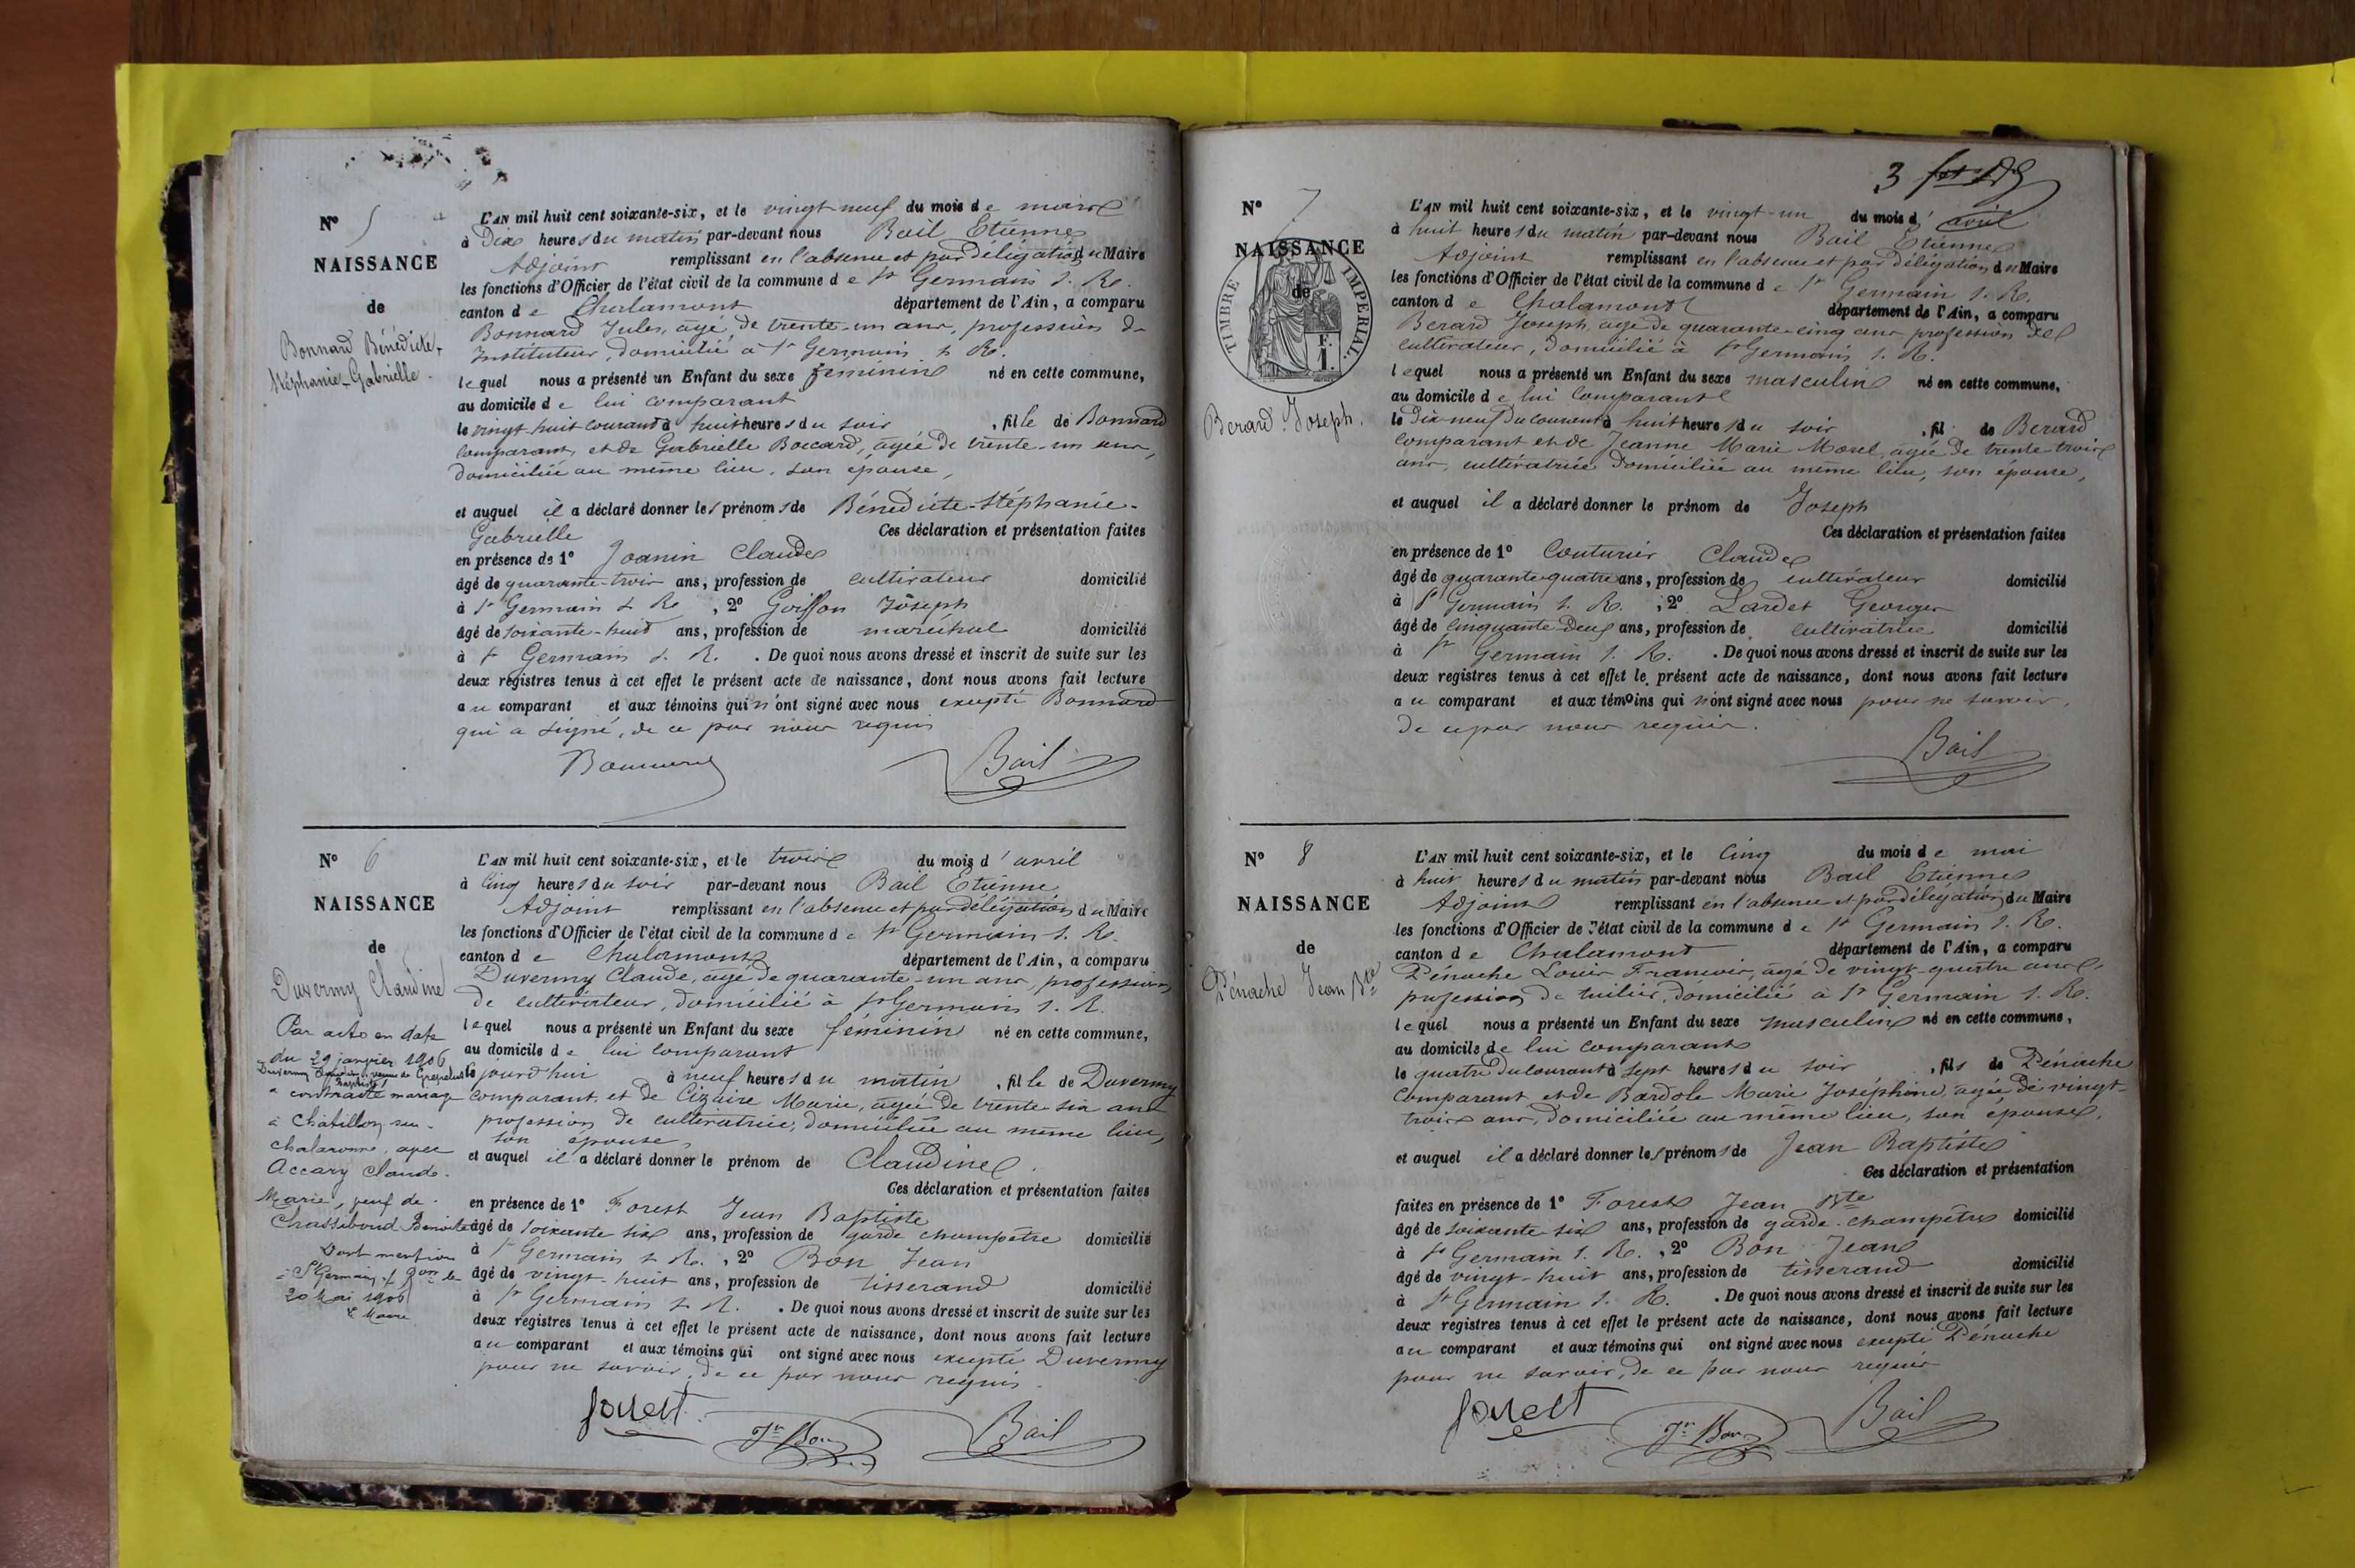 N° 5
NAISSANCE
de
Bonnard Bénédicte-
Stéphanie-Gabrielle.
L'AN mil huit cent soixante-six, et le vingt-neuf du mois de mars
à Dix heures du matin par-devant nous Bail Etienne
Adjoint remplissant en l'absence et par délégation du Maire
les fonctions d'Officier de l'état civil de la commune de St Germain s. R.
canton de Chalamont département de l'Ain, a comparu
Bonnard Jules, agé de trente-un ans, profession de
Instituteur, domicilié à St Germain s. R.
lequel nous a présenté un Enfant du sexe féminin né en cette commune,
au domicile de lui comparant
le vingt-huit courant à huit heures du soir , fille de Bonnard
comparant, et de Gabrielle Boccard, agée de trente-un ans,
domiciliée au même lieu, son épouse,
et auquel il a déclaré donner les prénoms de Bénédicte-Stéphanie-
Gabrielle Ces déclaration et présentation faites
en présence de 1° Joanin Claude
âgé de quarante-trois ans, profession de cultivateur domicilié
à St Germain s. R. , 2° Goiffon Joseph
âgé de soixante-huit ans, profession de maréchal domicilié
à St Germain s. R. . De quoi nous avons dressé et inscrit de suite sur les
deux registres tenus à cet effet le présent acte de naissance, dont nous avons fait lecture
au comparant et aux témoins qui n'ont signé avec nous excepté Bonnard
qui a signé, de ce par nous requis
Bonnard Bail
N° 6
NAISSANCE
de
Duvermy Claudine
Par acte en date
du 29 janvier 1906
a contracté mariage
à Chatillon sur-
Chalaronne, avec
Accary Claude-
Marie, veuf de
Dont mention
à St Germain le
20 Mai 1906
Le Maire
L'AN mil huit cent soixante-six, et le trois du mois d'avril
à cinq heures du soir par-devant nous Bail Etienne
Adjoint remplissant en l'absence et par délégation du Maire
les fonctions d'Officier de l'état civil de la commune de St Germain s. R.
canton de Chalamont département de l'Ain, a comparu
Duvermy Claude, agé de quarante-un ans, profession
de cultivateur, domicilié à St Germain s. R.
lequel nous a présenté un Enfant du sexe féminin né en cette commune,
au domicile de lui comparant
le jourd'hui à neuf heures du matin , fille de Duvermy
comparant, et de Cizaire Marie, agée de trente six ans
profession de cultivatrice, domiciliée au même lieu,
son épouse,
et auquel il a déclaré donner le prénom de Claudine.
Ces déclaration et présentation faites
en présence de 1° Forest Jean Baptiste
âgé de soixante six ans, profession de garde champêtre domicilié
à St Germain s. R. , 2° Bon Jean
âgé de vingt-huit ans, profession de tisserand domicilié
à St Germain s. R. . De quoi nous avons dressé et inscrit de suite sur les
deux registres tenus à cet effet le présent acte de naissance, dont nous avons fait lecture
au comparant et aux témoins qui ont signé avec nous excepté Duvermy
pour ne savoir, de ce par nous requis.
forest Jn Bon Bail
3
N° 7
NAISSANCE
de
TIMBRE IMPERIAL.
F.
1.
Berard Joseph.
L'AN mil huit cent soixante-six, et le vingt-un du mois d'avril
à huit heures du matin par-devant nous Bail Etienne
Adjoint remplissant en l'absence et par délégation du Maire
les fonctions d'Officier de l'état civil de la commune de St Germain s. R.
canton de Chalamont département de l'Ain, a comparu
Berard Joseph, agé de quarante-cinq ans profession de
cultivateur, domicilié à St Germain s. R.
lequel nous a présenté un Enfant du sexe masculin né en cette commune,
au domicile de lui comparant
le Dix-neuf du courant à huit heures du soir , fil de Berard
comparant et de Jeanne Marie Morel, agée de trente trois
ans, cultivatrice domiciliée au même lieu, son épouse,
et auquel il a déclaré donner le prénom de Joseph
Ces déclaration et présentation faites
en présence de 1° Couturier Claude
âgé de quarante quatre ans, profession de cultivateur domicilié
à St Germain s. R. , 2° Lardet Georges
âgé de cinquante-deux ans, profession de cultivatrice domicilié
à St Germain s. R. . De quoi nous avons dressé et inscrit de suite sur les
deux registres tenus à cet effet le présent acte de naissance, dont nous avons fait lecture
au comparant et aux témoins qui n'ont signé avec nous pour ne savoir,
de ce par nous requis.
Bail
N° 8
NAISSANCE
de
Pénache Jean Bte
L'AN mil huit cent soixante-six, et le cinq du mois de mai
à huit heures du matin par-devant nous Bail Etienne
Adjoint remplissant en l'absence et par délégation du Maire
les fonctions d'Officier de l'état civil de la commune de St Germain s. R.
canton de Chalamont département de l'Ain, a comparu
Pénache Louis François, agé de vingt-quatre ans,
profession de tuilier, domicilié à St Germain s. R.
lequel nous a présenté un Enfant du sexe masculin né en cette commune,
au domicile de lui comparant
le quatre du courant à sept heures du soir , fils de Pénache
comparant et de Bardole Marie Joséphine, agée de vingt-
trois ans, domiciliée au même lieu, son épouse,
et auquel il a déclaré donner les prénoms de Jean Baptiste
Ces déclaration et présentation
faites en présence de 1° Forest Jean Bte
âgé de soixante six ans, profession de garde-champêtre domicilié
à St Germain s. R. , 2° Bon Jean
âgé de vingt-huit ans, profession de tisserand domicilié
à St Germain s. R. . De quoi nous avons dressé et inscrit de suite sur les
deux registres tenus à cet effet le présent acte de naissance, dont nous avons fait lecture
au comparant et aux témoins qui ont signé avec nous excepté Pénache
pour ne savoir, de ce par nous requis
forest Jn Bon Bail